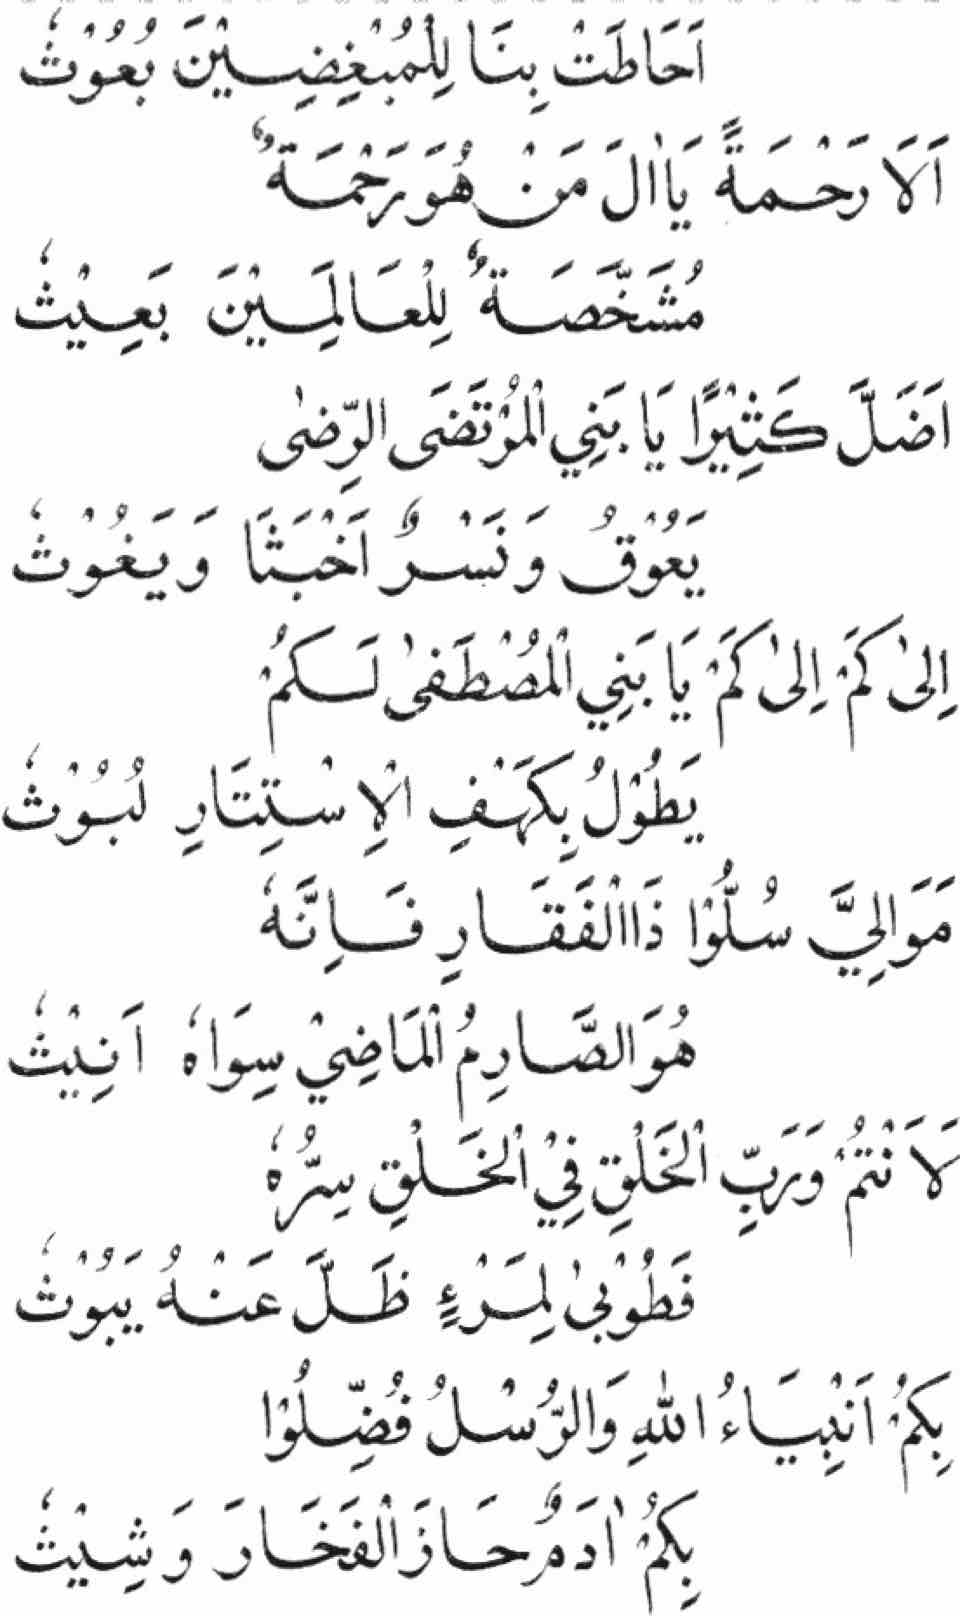 اَحَاطَتْ بِنَا لِلْمُبْغِضِيْنَ بُعُوْثٗ
اَلَا رَحْمَةً يَا اٰلَ مَنْ هُوَ رَحْمَةٌ
مُشَخَّصَةٌ لِلْعَالَمِيْنَ بَعِيْثٗ
اَضَلَّ كَثِيْرًا يَا بَنِي الْمُرْتَضَى الرِّضٰى
يَعُوْقُ وَنَسْرٌ اَخْبَثَا وَيَغُوْثٗ
اِلىٰ كَمْ اِلىٰ كَمْ يَا بَنِي الْمُصْطَفىٰ لَكُمْ
يَطُوْلُ بِكَهْفِ الْاِسْتِتَارِ لُبُوْثٗ
مَوَالِيَّ سُلُّوْا ذَا الْفَقَارِ فَاِنَّهٗ
هُوَ الصَّارِمُ الْمَاضِيْ سِوَاهُ اَنِيْثٗ
لَاَنْتُمْ وَرَبِّ الْخَلْقِ فِيْ الْخَلْقِ سِرُّهٗ
فَطُوْبىٰ لِمَرْءٍ ظَلَّ عَنْهُ يَبُوْثٗ
بِكُمْ اَنْبِيَاءُ اللهِ وَالرُّسْلُ فُضِّلُوْا
بِكُمْ اٰدَمٌ حَازَ الْفَخَارَ وَشِيْثٗ